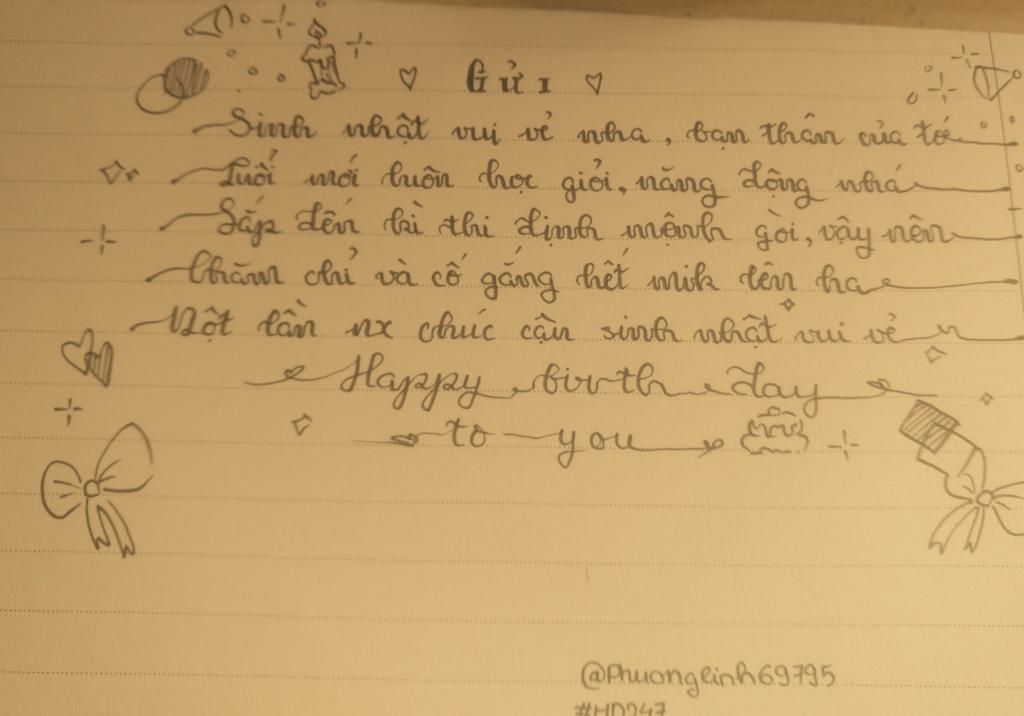 Gửi
Sinh nhật vui vẻ nha, bạn thân của tớ
Tuổi mới luôn học giỏi, năng động nhá
Sắp đến kì thi định mệnh gòi, vậy nên
Chăm chỉ và cố gắng hết mik lên ha
Một lần nx chúc cậu sinh nhật vui vẻ
Happy birth day
to you
@Phuonglinh69795
#HD247